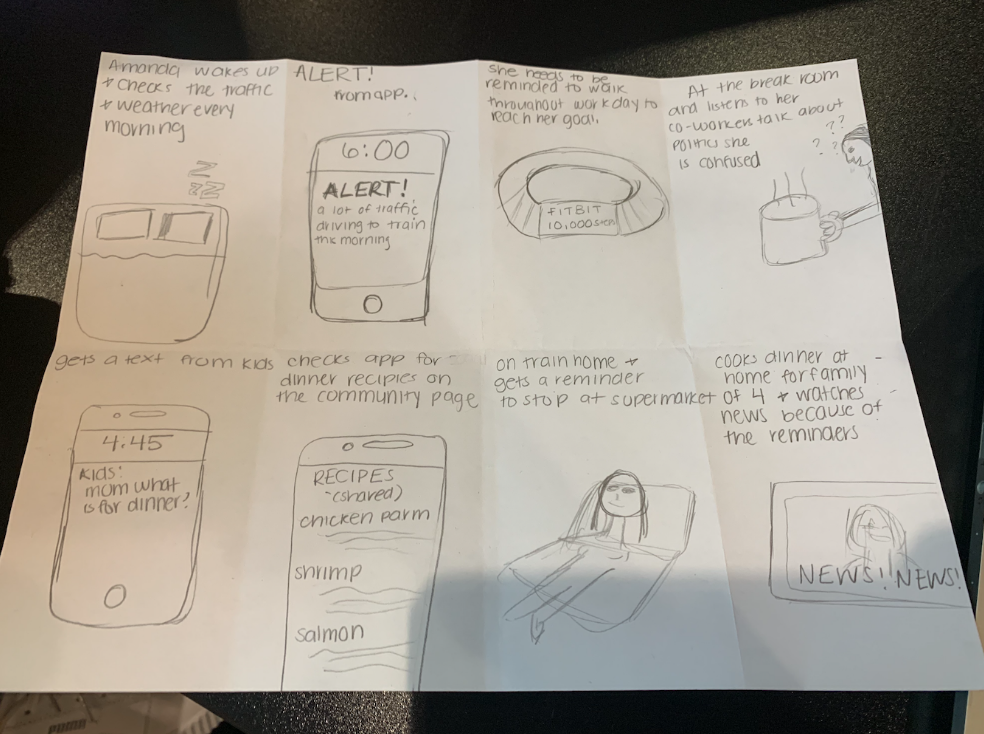 Amanda wakes up
+ checks the traffic
+ weather every
morning
Z
ZZ
ALERT!
from app..
6:00
ALERT!
a lot of traffic
driving to train
this morning
she needs to be
reminded to walk
throughout workday to
reach her goal.
FITBIT
10,000 steps
At the break room
and listens to her
co-worker talk about
politics she
is confused
? ?
? ?
gets a text from kids
4:45
Kids:
mom what
is for dinner?
checks app for
dinner recipies on
the community page
RECIPES
-(shared)
chicken parm
shrimp
salmon
on train home +
gets a reminder
to stop at supermarket
cooks dinner at
home for family
of 4 + watches
news because of
the reminders
NEWS! NEWS!
PUMA